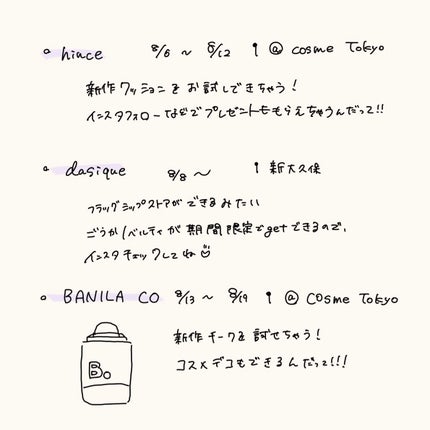 hince 8/6 〜 8/12 @ cosme Tokyo
新作クッションをお試しできちゃう!
インスタフォローなどでプレゼントももらえちゃうんだって!!
dasique 8/8 〜 新大久保
フラッグシップストアができるみたい
ごうかノベルティが期間限定でgetできるので、
インスタチェックしてね
BANILA CO 8/13 〜 8/19 @ cosme Tokyo
新作チークを試せちゃう!
コスメデコもできるんだって!!!
B.